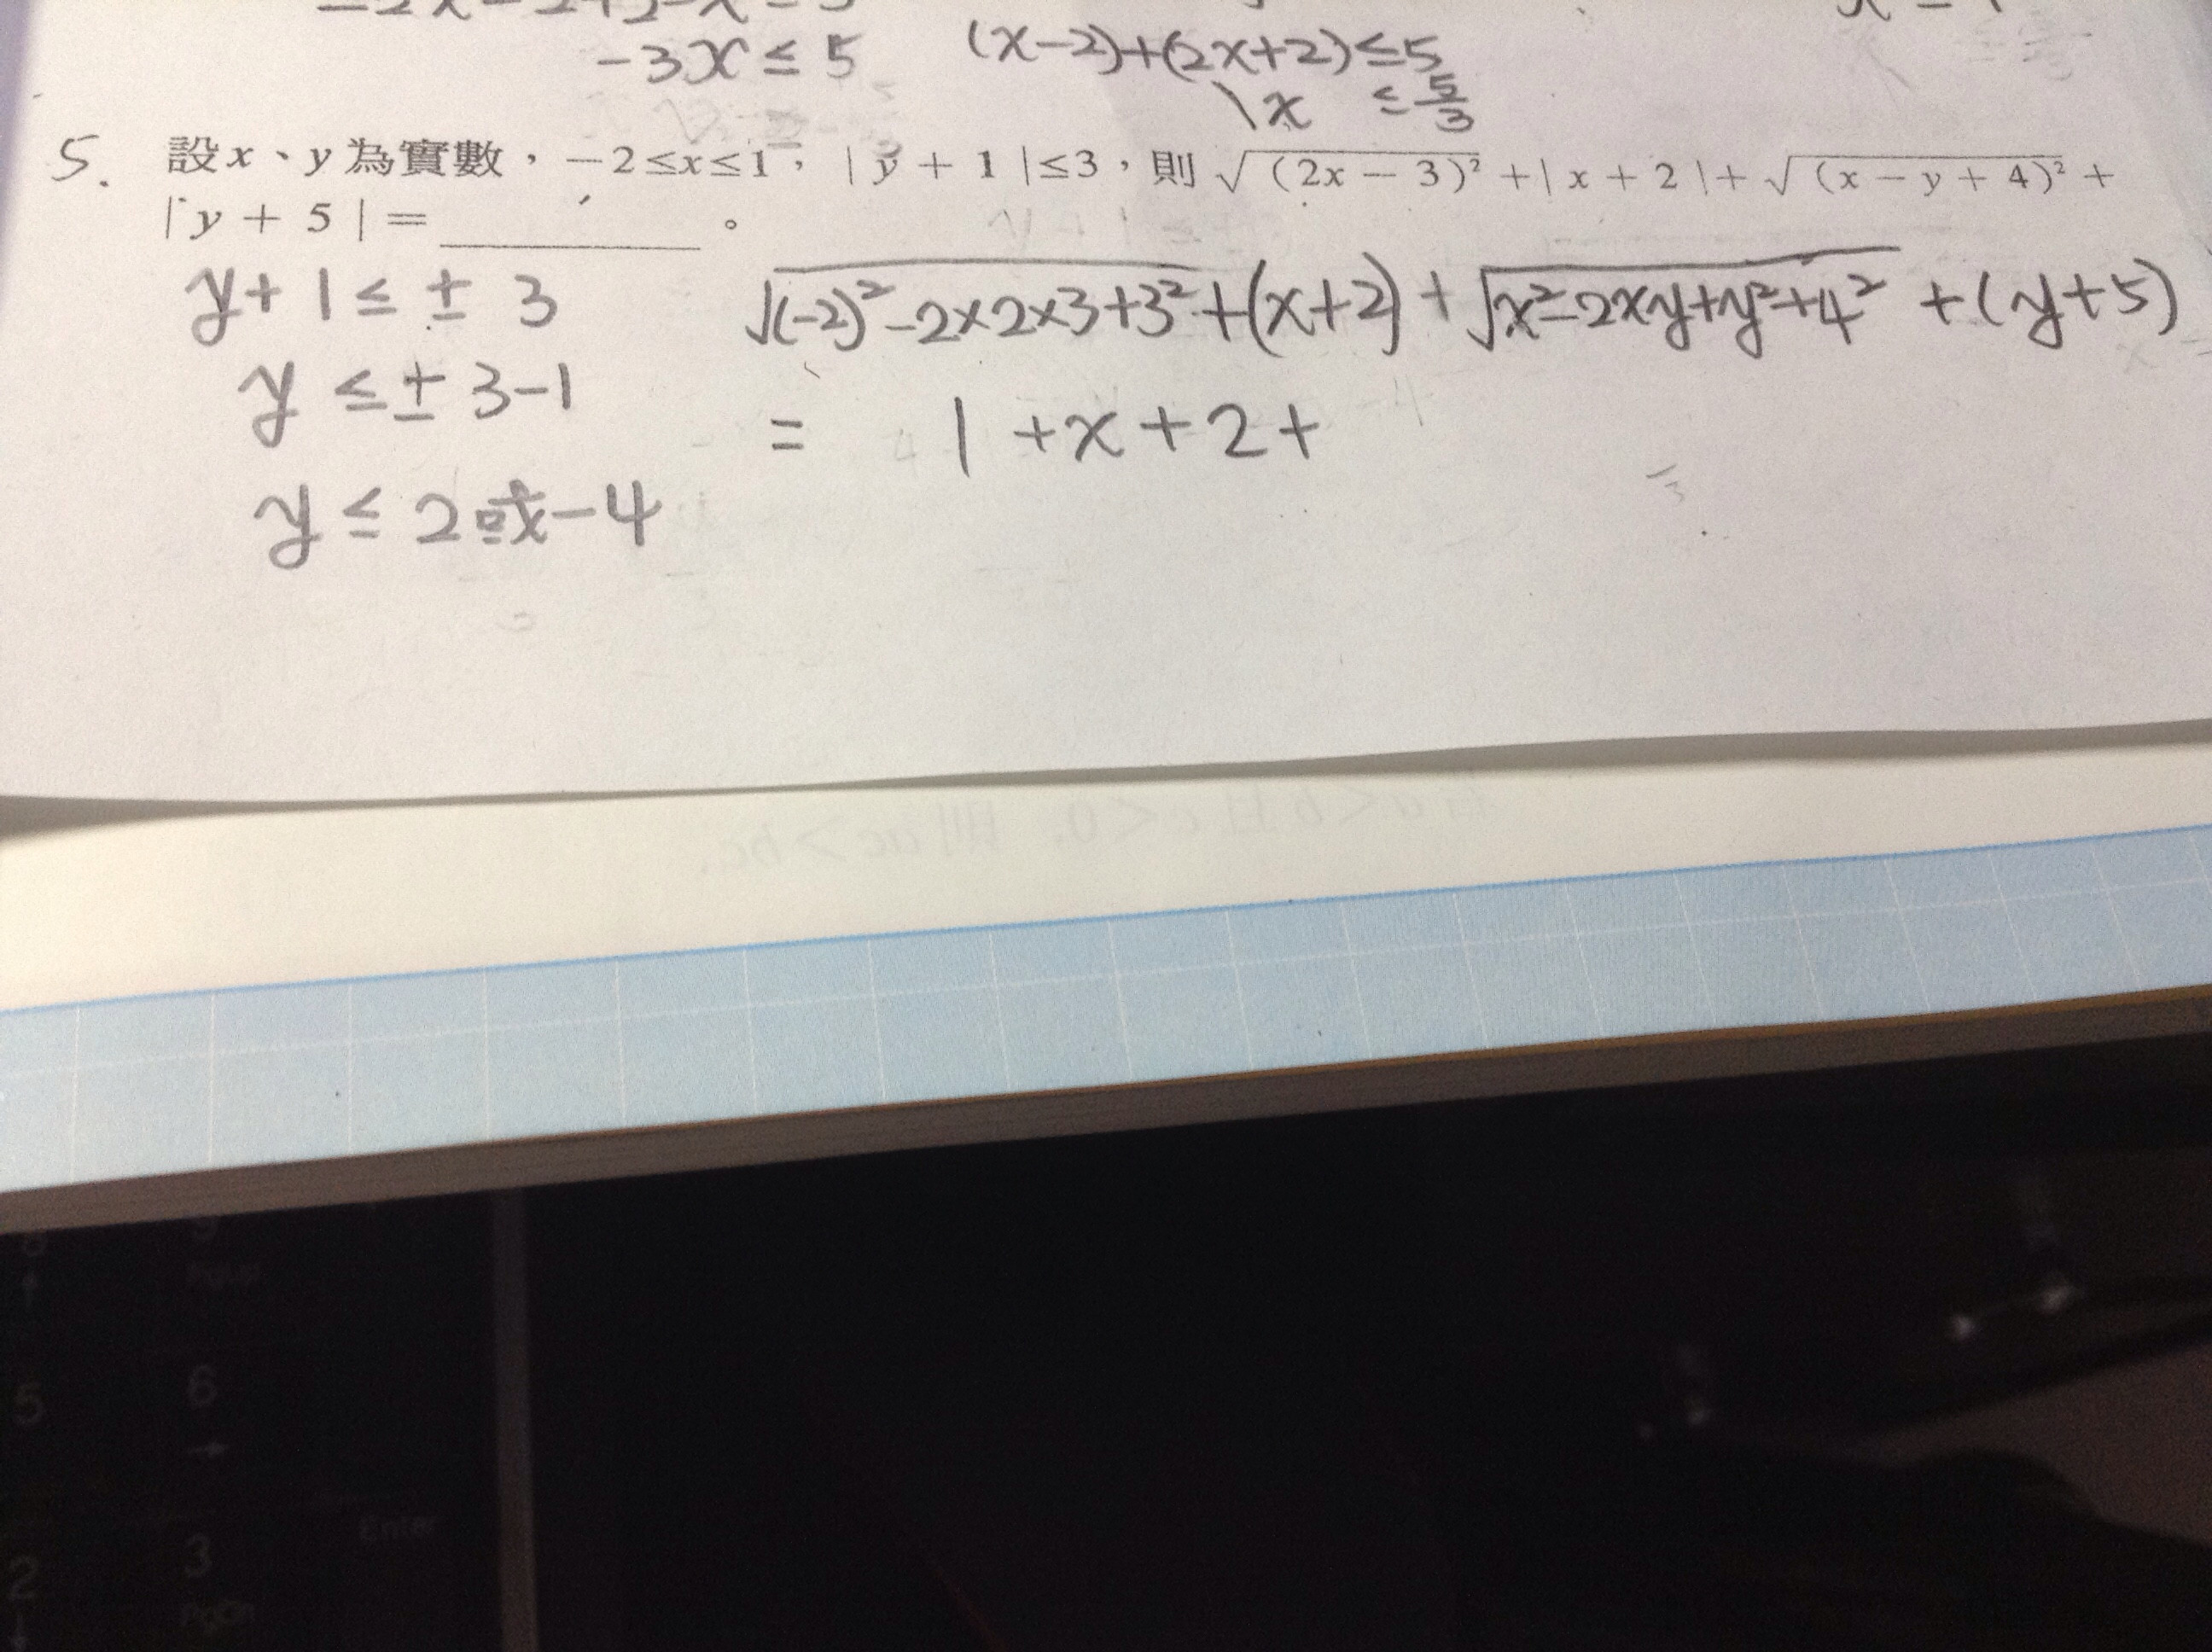 -3x ≤ 5
(x-2)+(2x+2)≤5
x ≤ 5/3
5. 設x、y為實數，-2≤x≤1，|y+1|≤3，則√(2x-3)²+|x+2|+√(x-y+4)²+
|y+5|=________。
y+1≤±3
√(-2)²-2×2×3+3²+(x+2)+√x²-2xy+y²+4²+(y+5)
y≤±3-1
= 1+x+2+
y≤2或-4
5
6
2
3
Enter